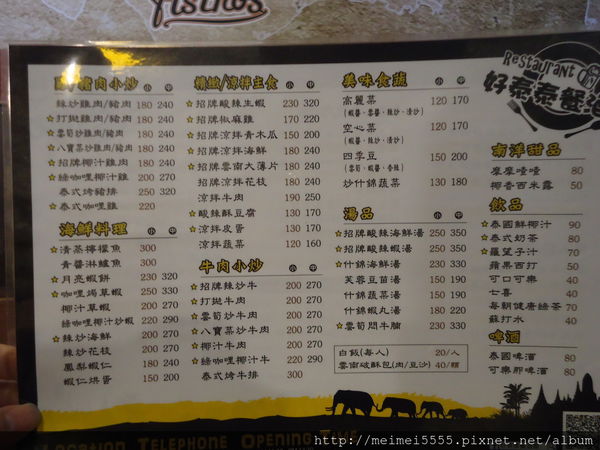 豬肉小炒 小 中
辣炒雞肉/豬肉 180 240
☆打拋雞肉/豬肉 180 240
☆雲筍炒雞肉/豬肉 180 240
☆八寶菜炒雞肉/豬肉 180 240
☆招牌椰汁雞肉 180 240
☆綠咖哩椰汁雞 200 240
泰式烤豬排 250 320
☆泰式咖哩雞 220
海鮮料理 小 中
☆清蒸檸檬魚 300
青醬淋鱸魚 300
☆月亮蝦餅 230 320
☆咖哩焗草蝦 250 330
椰汁草蝦 200 270
綠咖哩椰汁炒蝦 220 290
☆辣炒海鮮 200 270
辣炒花枝 200 270
鳳梨蝦仁 180 240
蝦仁烘蛋 150 200
精緻/涼拌主食 小 中
☆招牌酸辣生蝦 230 320
☆招牌椒麻雞 170 220
☆招牌涼拌青木瓜 150 200
☆招牌涼拌海鮮 180 240
☆招牌雲南大薄片 180 240
招牌涼拌花枝 180 240
涼拌牛肉 190 250
☆酸辣酥豆腐 130 170
涼拌皮蛋 130 170
涼拌蔬菜 120 160
牛肉小炒 小 中
☆招牌辣炒牛 200 270
☆打拋牛肉 200 270
☆雲筍炒牛肉 200 270
☆八寶菜炒牛肉 200 270
☆綠咖哩椰汁牛 220 290
泰式烤牛排 300
美味食蔬 小 中
高麗菜 120 170
(蝦醬、蠔醬、辣炒、清炒)
空心菜 120 170
(蝦醬、辣炒、清炒)
四季豆 150 200
炒什錦蔬菜 130 180
湯品 小 中
☆招牌酸辣海鮮湯 250 350
☆招牌酸辣蝦湯 250 350
☆什錦海鮮湯 230 330
芙蓉豆苗湯 150 190
什錦蔬菜湯 150 190
什錦蝦丸湯 180 220
☆雲筍悶牛腩 230 330
白飯(每人) 20/人
雲南破酥包(肉/豆沙) 40/顆
Restaurant
好泰泰餐
南洋甜品
摩摩喳喳 80
椰香西米露 50
飲品
☆泰國鮮椰汁 90
☆泰式奶茶 80
☆羅望子汁 70
蘋果西打 50
可口可樂 40
七喜 40
每朝健康綠茶 70
蘇打水 40
啤酒
泰國啤酒 80
可樂那啤酒 80
Location Telephone Opening Time
http://meimei5555.pixnet.net/album